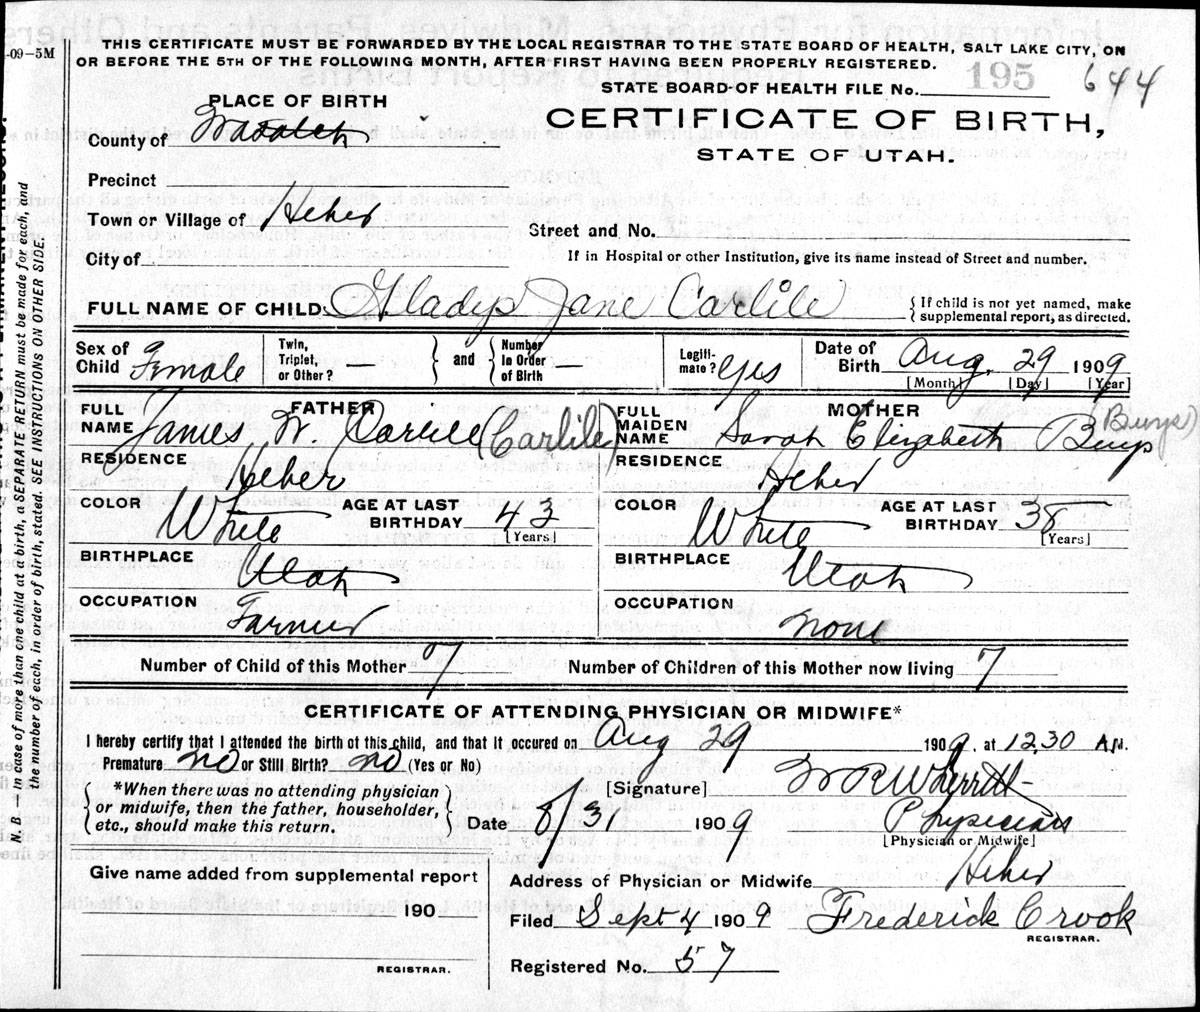 -09-5M
THIS CERTIFICATE MUST BE FORWARDED BY THE LOCAL REGISTRAR TO THE STATE BOARD OF HEALTH, SALT LAKE CITY, ON
OR BEFORE THE 5TH OF THE FOLLOWING MONTH, AFTER FIRST HAVING BEEN PROPERLY REGISTERED.
195 644
STATE BOARD OF HEALTH FILE No.
PLACE OF BIRTH
CERTIFICATE OF BIRTH,
STATE OF UTAH.
County of Wasatch
Precinct
Town or Village of Heber
Street and No.
City of
If in Hospital or other Institution, give its name instead of Street and number.
FULL NAME OF CHILD. Gladys Jane Carlile
{ If child is not yet named, make supplemental report, as directed.
Sex of Child Female
Twin, Triplet, or Other? —
and
Number in Order of Birth —
Legiti-mate? yes
Date of Birth Aug. 29 1909
[Month] [Day] [Year]
FULL NAME FATHER James W. Carlile (Carlile)
FULL MAIDEN NAME MOTHER Sarah Elizabeth Burys (Burys)
RESIDENCE Heber
RESIDENCE Heber
COLOR White AGE AT LAST BIRTHDAY 43 [Years]
COLOR White AGE AT LAST BIRTHDAY 38 [Years]
BIRTHPLACE Utah
BIRTHPLACE Utah
OCCUPATION Farmer
OCCUPATION none
Number of Child of this Mother 7 Number of Children of this Mother now living 7
CERTIFICATE OF ATTENDING PHYSICIAN OR MIDWIFE*
I hereby certify that I attended the birth of this child, and that it occured on Aug 29 1909. at 12,30 A M.
Premature no or Still Birth? no (Yes or No)
*When there was no attending physician or midwife, then the father, householder, etc., should make this return.
[Signature] W R Wherritt
Date 8/31 1909 Physician
[Physician or Midwife]
Give name added from supplemental report
190
REGISTRAR.
Address of Physician or Midwife Heber
Filed Sept 4 1909 Frederick Crook
REGISTRAR.
Registered No. 57
N. B.—In case of more than one child at a birth, a SEPARATE RETURN must be made for each, and
the number of each, in order of birth, stated. SEE INSTRUCTIONS ON OTHER SIDE.